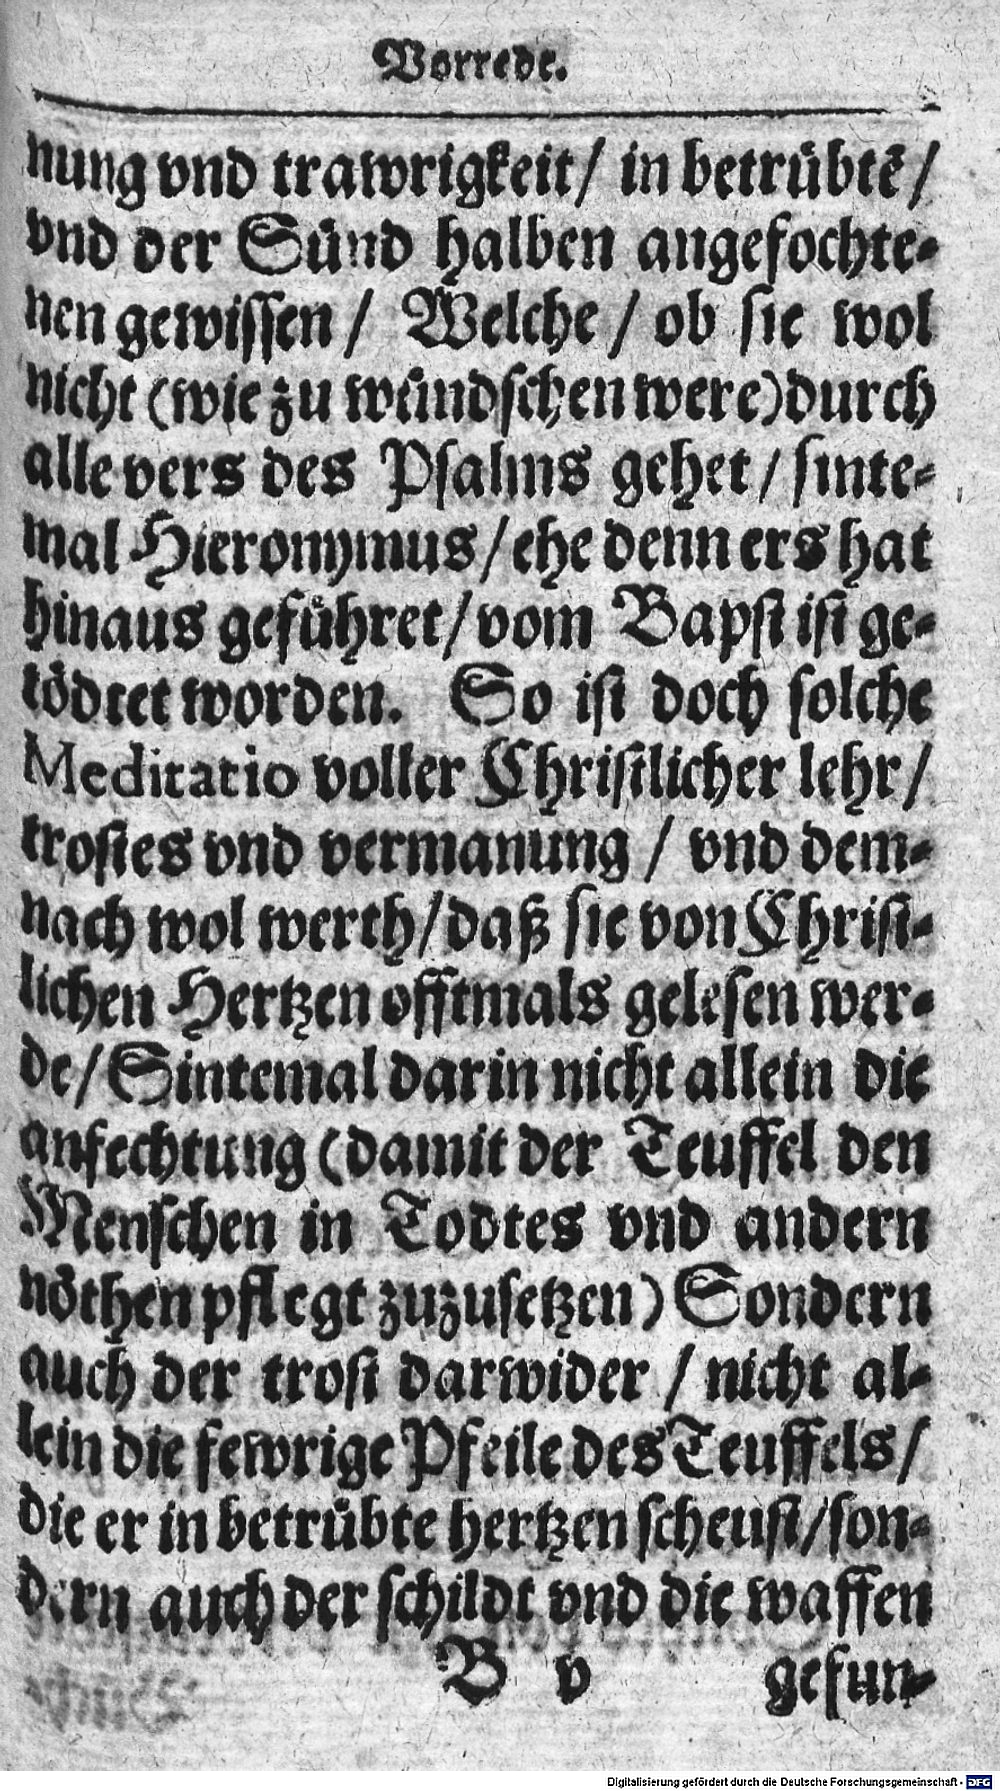 Vorrede.
nung vnd trawrigkeit/ in betruͤbtẽ/
vnd der Suͤnd halben angefochte-
nen gewissen/ Welche/ ob sie wol
nicht (wie zu wuͤndschen were) durch
alle vers des Psalms gehet/ sinte-
mal Hieronymus/ ehe denn ers hat
hinaus gefuͤhret/ vom Bapst ist ge-
toͤdtet worden. So ist doch solche
Meditatio voller Christlicher lehr/
trostes vnd vermanung/ vnd dem-
nach wol werth/ daß sie von Christ-
lichen Hertzen offtmals gelesen wer-
de/ Sintemal darin nicht allein die
anfechtung (damit der Teuffel den
Menschen in Todtes vnd andern
noͤthen pflegt zuzusetzen) Sondern
auch der trost darwider/ nicht al-
lein die fewrige Pfeile des Teuffels/
die er in betruͤbte hertzen scheust/ son-
dern auch der schildt vnd die waffen
B v gefun-
Digitalisierung gefördert durch die Deutsche Forschungsgemeinschaft - DFG